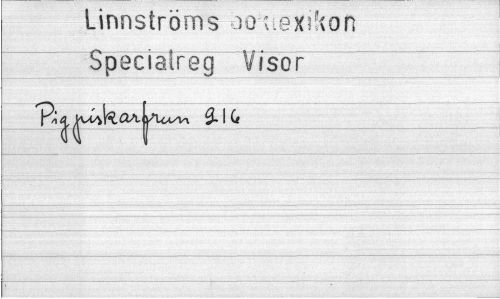 Linnströms boklexikon
Specialreg Visor
Pigpiskarfrun 216